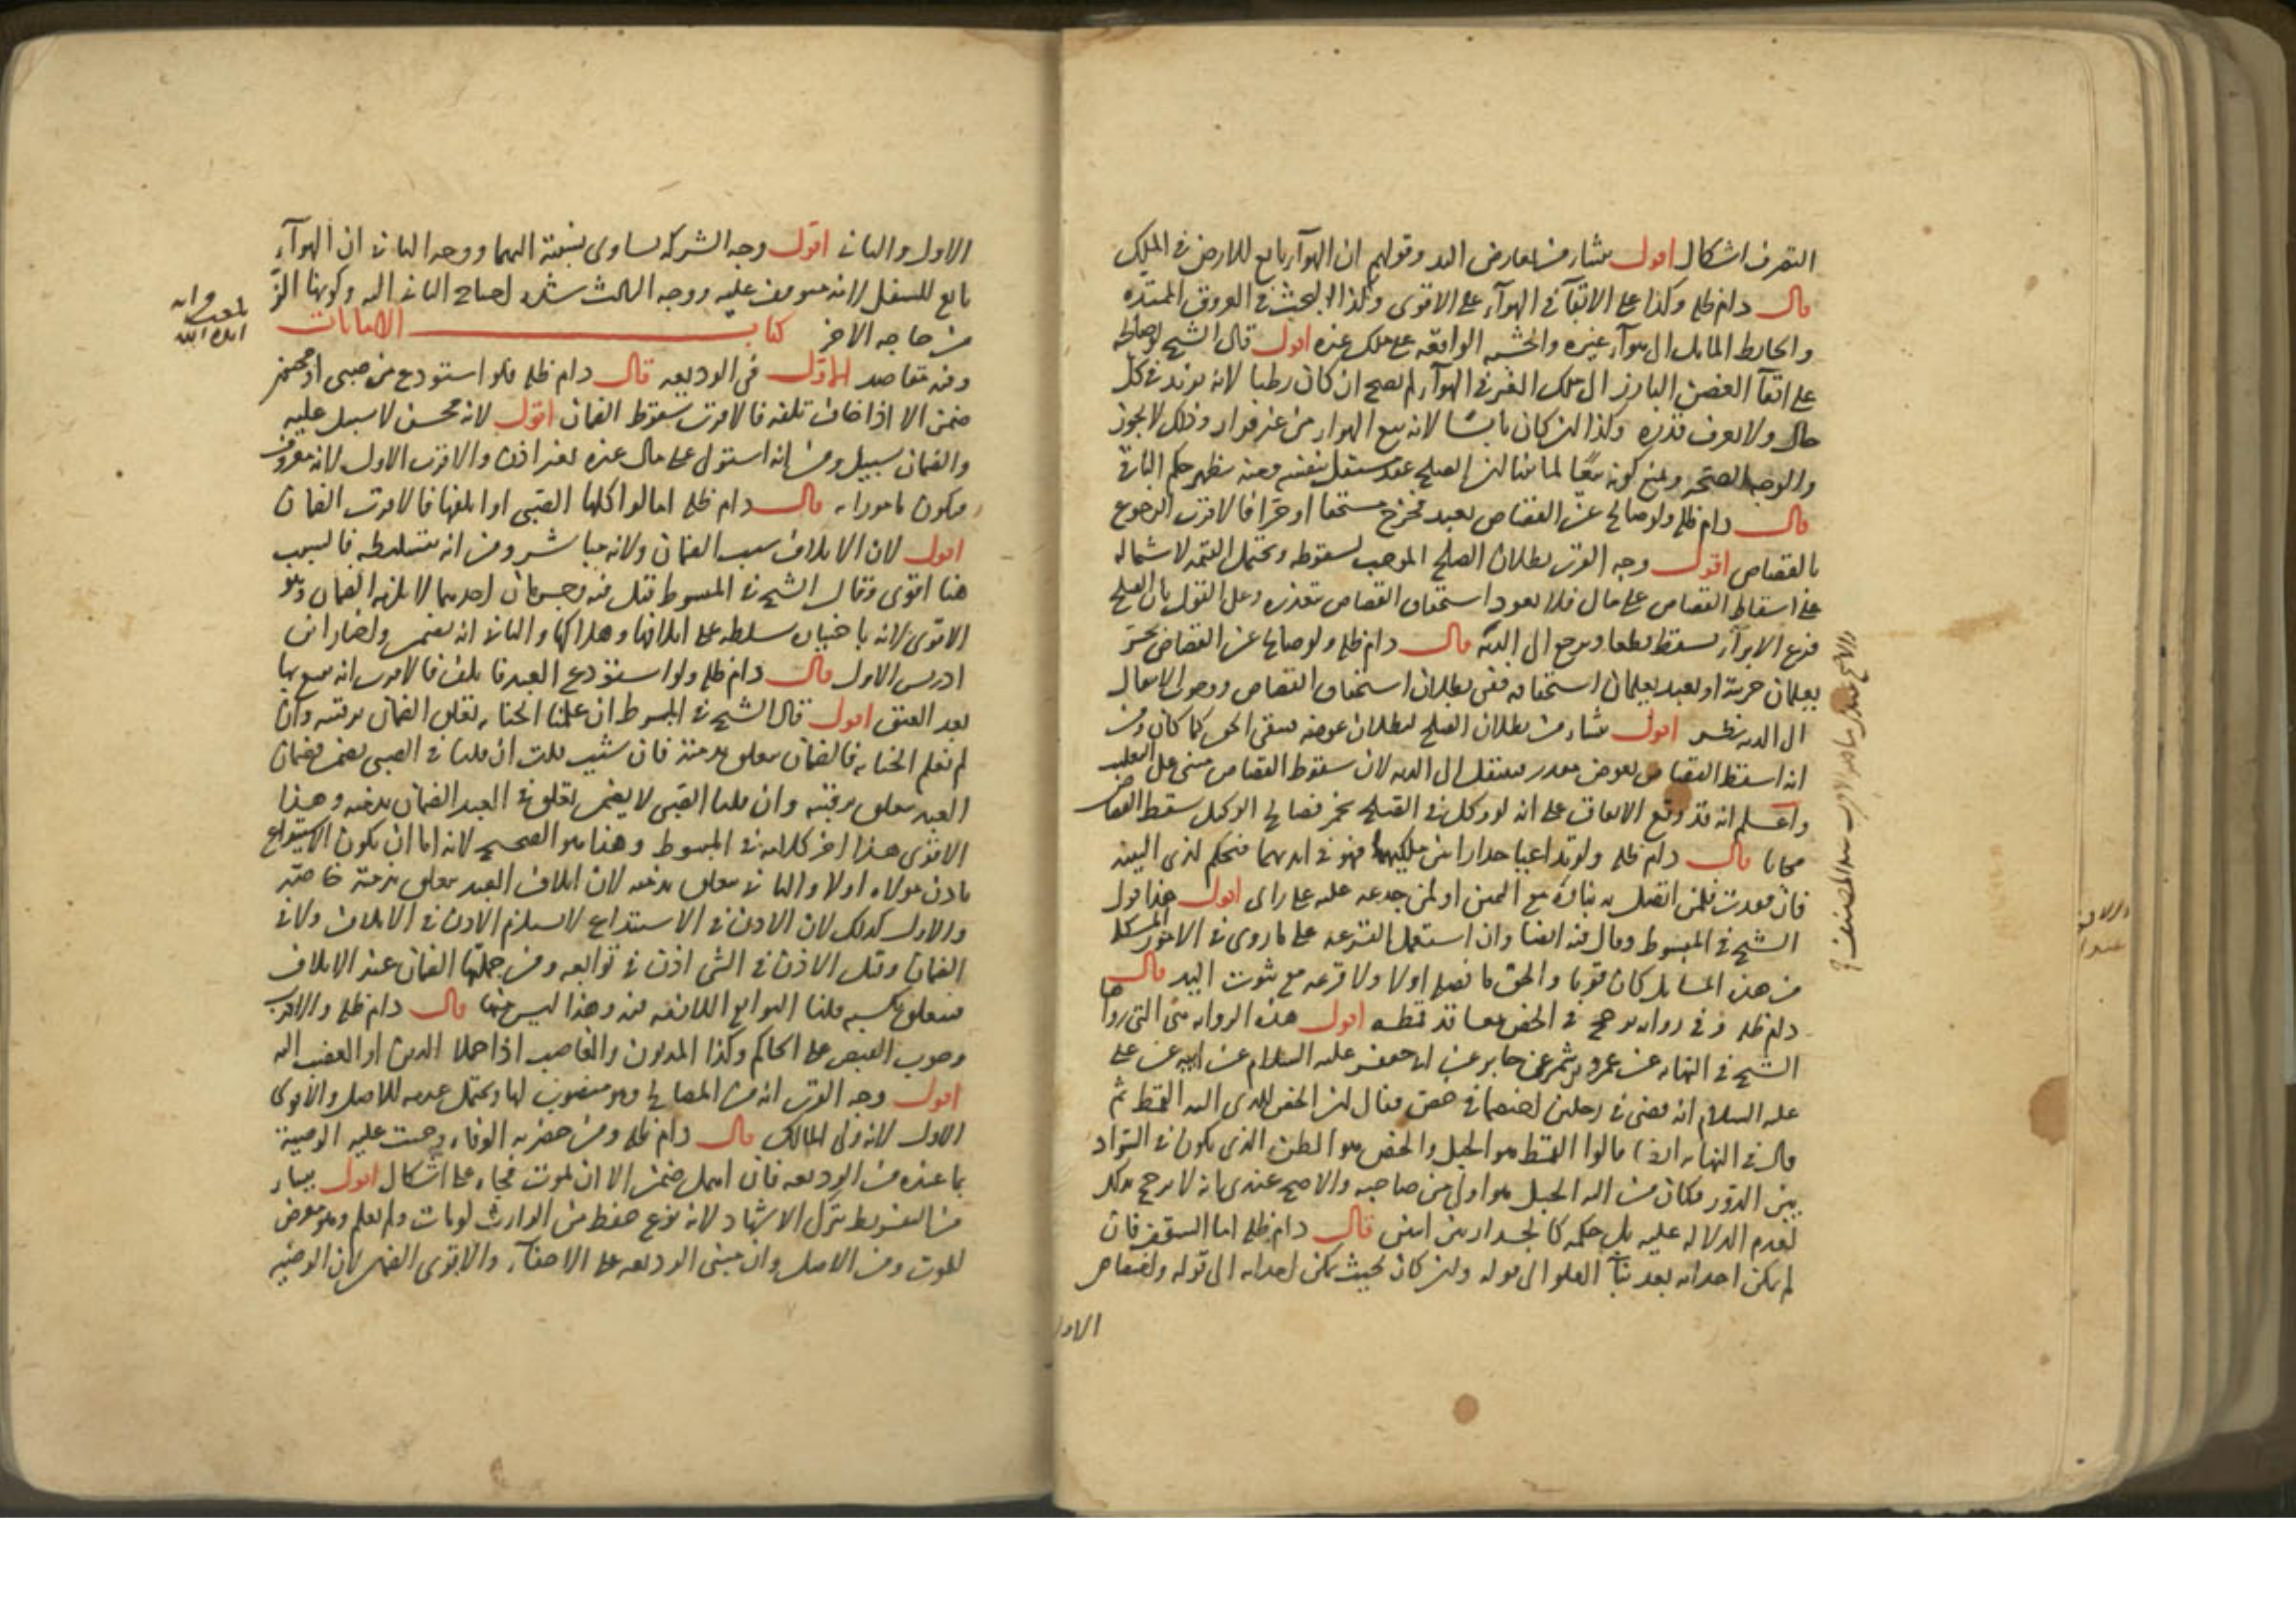 التصرف اشكال اقول ينشأ من تعارض اليد وقولهم ان الهوآء تابع للارض في الملك
قال دام ظله وكذا على الابقآء في الهوآء على الاقوى وكذا البحث في العروق الممتده
والحايط المايل الى هوآء غيره والخشبه الواقعه على ملك غيره اقول قال الشيخ لو صالحه
على ابقآء الغصن البارز الى ملك الغير في الهوآء لم يصح ان كان رطبا لانه يزيد في كل
حال ولا يعرف قدره وكذا ان كان يابسا لانه بيع الهواء من غير قرار وذلك لا يجوز
والوجه الصحه ونمنع كونه بيعا لما بينا ان الصلح عقد مستقل بنفسه ومنه يظهر حكم الباقي
قال دام ظله ولو صالح عن القصاص بعبد فخرج مستحقا او حرا فالاقرب الرجوع
بالقصاص اقول وجه القرب بطلان الصلح الموجب لسقوطه ويحتمل القيمه لاشتماله
على اسقاط القصاص على مال فلا يعود استحقاق القصاص بتعذره وعلى القول بان الصلح
فرع الابرآء يسقط قطعا ويرجع الى الديه قال دام ظله ولو صالح عن القصاص بحر
يعلمان حريته او بعبد يعلمان استحقاقه ففي بطلان استحقاق القصاص ووجوب الانتقال
الى الديه نظر اقول ينشأ من بطلان الصلح لبطلان عوضه فيبقى الحق كما كان ومن
انه اسقط القصاص بعوض معذر فينتقل الى الديه لان سقوط القصاص مبني على التغليب
واعلم انه قد وقع الاتفاق على انه لو وكل في الصلح بخمر فصالح الوكيل سقط القصاص
مجانا قال دام ظله ولو تداعيا جدارا بين ملكيهما فهو في ايديهما فيحكم لذي البينه
فان فقدت فلمن اتصل به بناؤه مع اليمين او لمن جذعه عليه على راى اقول هذا قول
الشيخ في المبسوط وقال فيه ايضا وان استعمل القرعه على ما روى في الامور المشكله
من هذه المسايل كان قويا والحق ما فصله اولا ولا قرعه مع ثبوت اليد قال
دام ظله وفي روايه يرجح في الخص معاقد قمطه اقول هذه الروايه هي التي رواها
الشيخ في النهايه عن عمرو بن شمر عن جابر عن ابي جعفر عليه السلام عن ابيه عن علي
عليه السلام انه قضى في رجلين اختصما في خص فقال ان الخص للذي اليه القمط ثم
قال في النهايه ايضا قالوا القمط هو الحبل والخص هو الطن الذي يكون في السواد
بين الدور فكان من اليه الحبل هو اولى من صاحبه والاصح عندي انه لا يرجح بذلك
لعدم الدلاله عليه بل حكمه كالجدار بين اثنين قال دام ظله اما السقف فان
لم يمكن احداثه بعد بنآء العلو الى قوله وان كان بحيث يمكن احداثه الى قوله واختصاص
الاول
الاول والثاني اقول وجه الشركه تساوى نسبته اليهما ووجه الثاني ان الهوآء
تابع للسفل لانه موقوف عليه ووجه الثالث شدة احتياج الثاني اليه وكونها اكثر
من حاجه الاخر كتاب الامانات
وفيه مقاصد الاول في الوديعه قال دام ظله فلو استودع من صبي او مجنون
ضمن الا اذا خاف تلفه فالاقرب سقوط الضمان اقول لانه محسن لا سبيل عليه
والضمان سبيل ومن انه استولى على مال غيره بغير اذن والاقرب الاول لانه معروف
فيكون مامورا به قال دام ظله اما لو اكلها الصبي او اتلفها فالاقرب الضمان
اقول لان الاتلاف سبب الضمان ولانه مباشر ومن انه بتسليطه فالسبب
هنا اقوى وقال الشيخ في المبسوط قيل فيه وجهان احدهما لا يلزمه الضمان وهو
الاقوى لانه باختياره سلطه على اتلافها وهلاكها والثاني انه يضمن واختار ابن
ادريس الاول قال دام ظله ولو استودع العبد فاتلف فالاقرب انه يتبع بها
بعد العتق اقول قال الشيخ في المبسوط ان علمنا الجنايه تعلق الضمان برقبته وان
لم نعلم الجنايه فالضمان متعلق بذمته فان شئت قلت ان قلنا في الصبي يضمن فضمان
العبد متعلق برقبته وان قلنا الصبي لا يضمن تعلق في العبد الضمان بذمته وهذا
الاقوى هذا اخر كلامه في المبسوط وهذا هو الصحيح لانه اما ان يكون الاستيداع
باذن مولاه اولا والثاني متعلق بذمته لان اتلاف العبد متعلق بذمته خاصه
والاول كذلك لان الاذن في الاستيداع لا يستلزم الاذن في الاتلاف ولا في
الضمان وقيل الاذن في الشي اذن في توابعه ومن جملتها الضمان عند الاتلاف
فيتعلق بكسبه قلنا التوابع اللازمه منه وهذا ليس منها قال دام ظله والاقرب
وجوب القبض على الحاكم وكذا المديون والغاصب اذا حملا الدين او الغصب اليه
اقول وجه القرب انه من المصالح وهو منصوب لها ويحتمل عدمه للاصل والاقوى
الاول لانه ولي المالك قال دام ظله ومن حضرته الوفاه وجبت عليه الوصيه
بما عنده من الوديعه فان اهمل ضمن الا ان يموت فجاه على اشكال اقول ينشأ
من التفريط بترك الاشهاد لانه نوع حفظ من الوارث لو مات ولم يعلم وهو معرض
للموت ومن الاصل وان مبنى الوديعه على الاخفآء والاقوى الضمان لان الوصيه